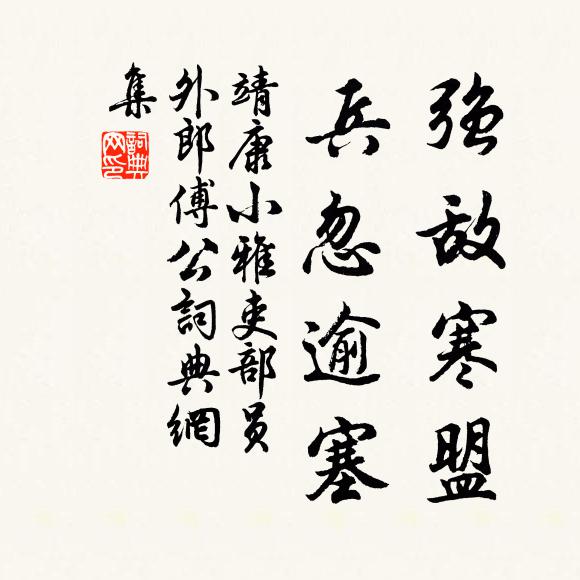 强敌寒盟
兵忽逾塞
靖康小雅吏部员
外郎傅公詞典網
集
詞典
网印